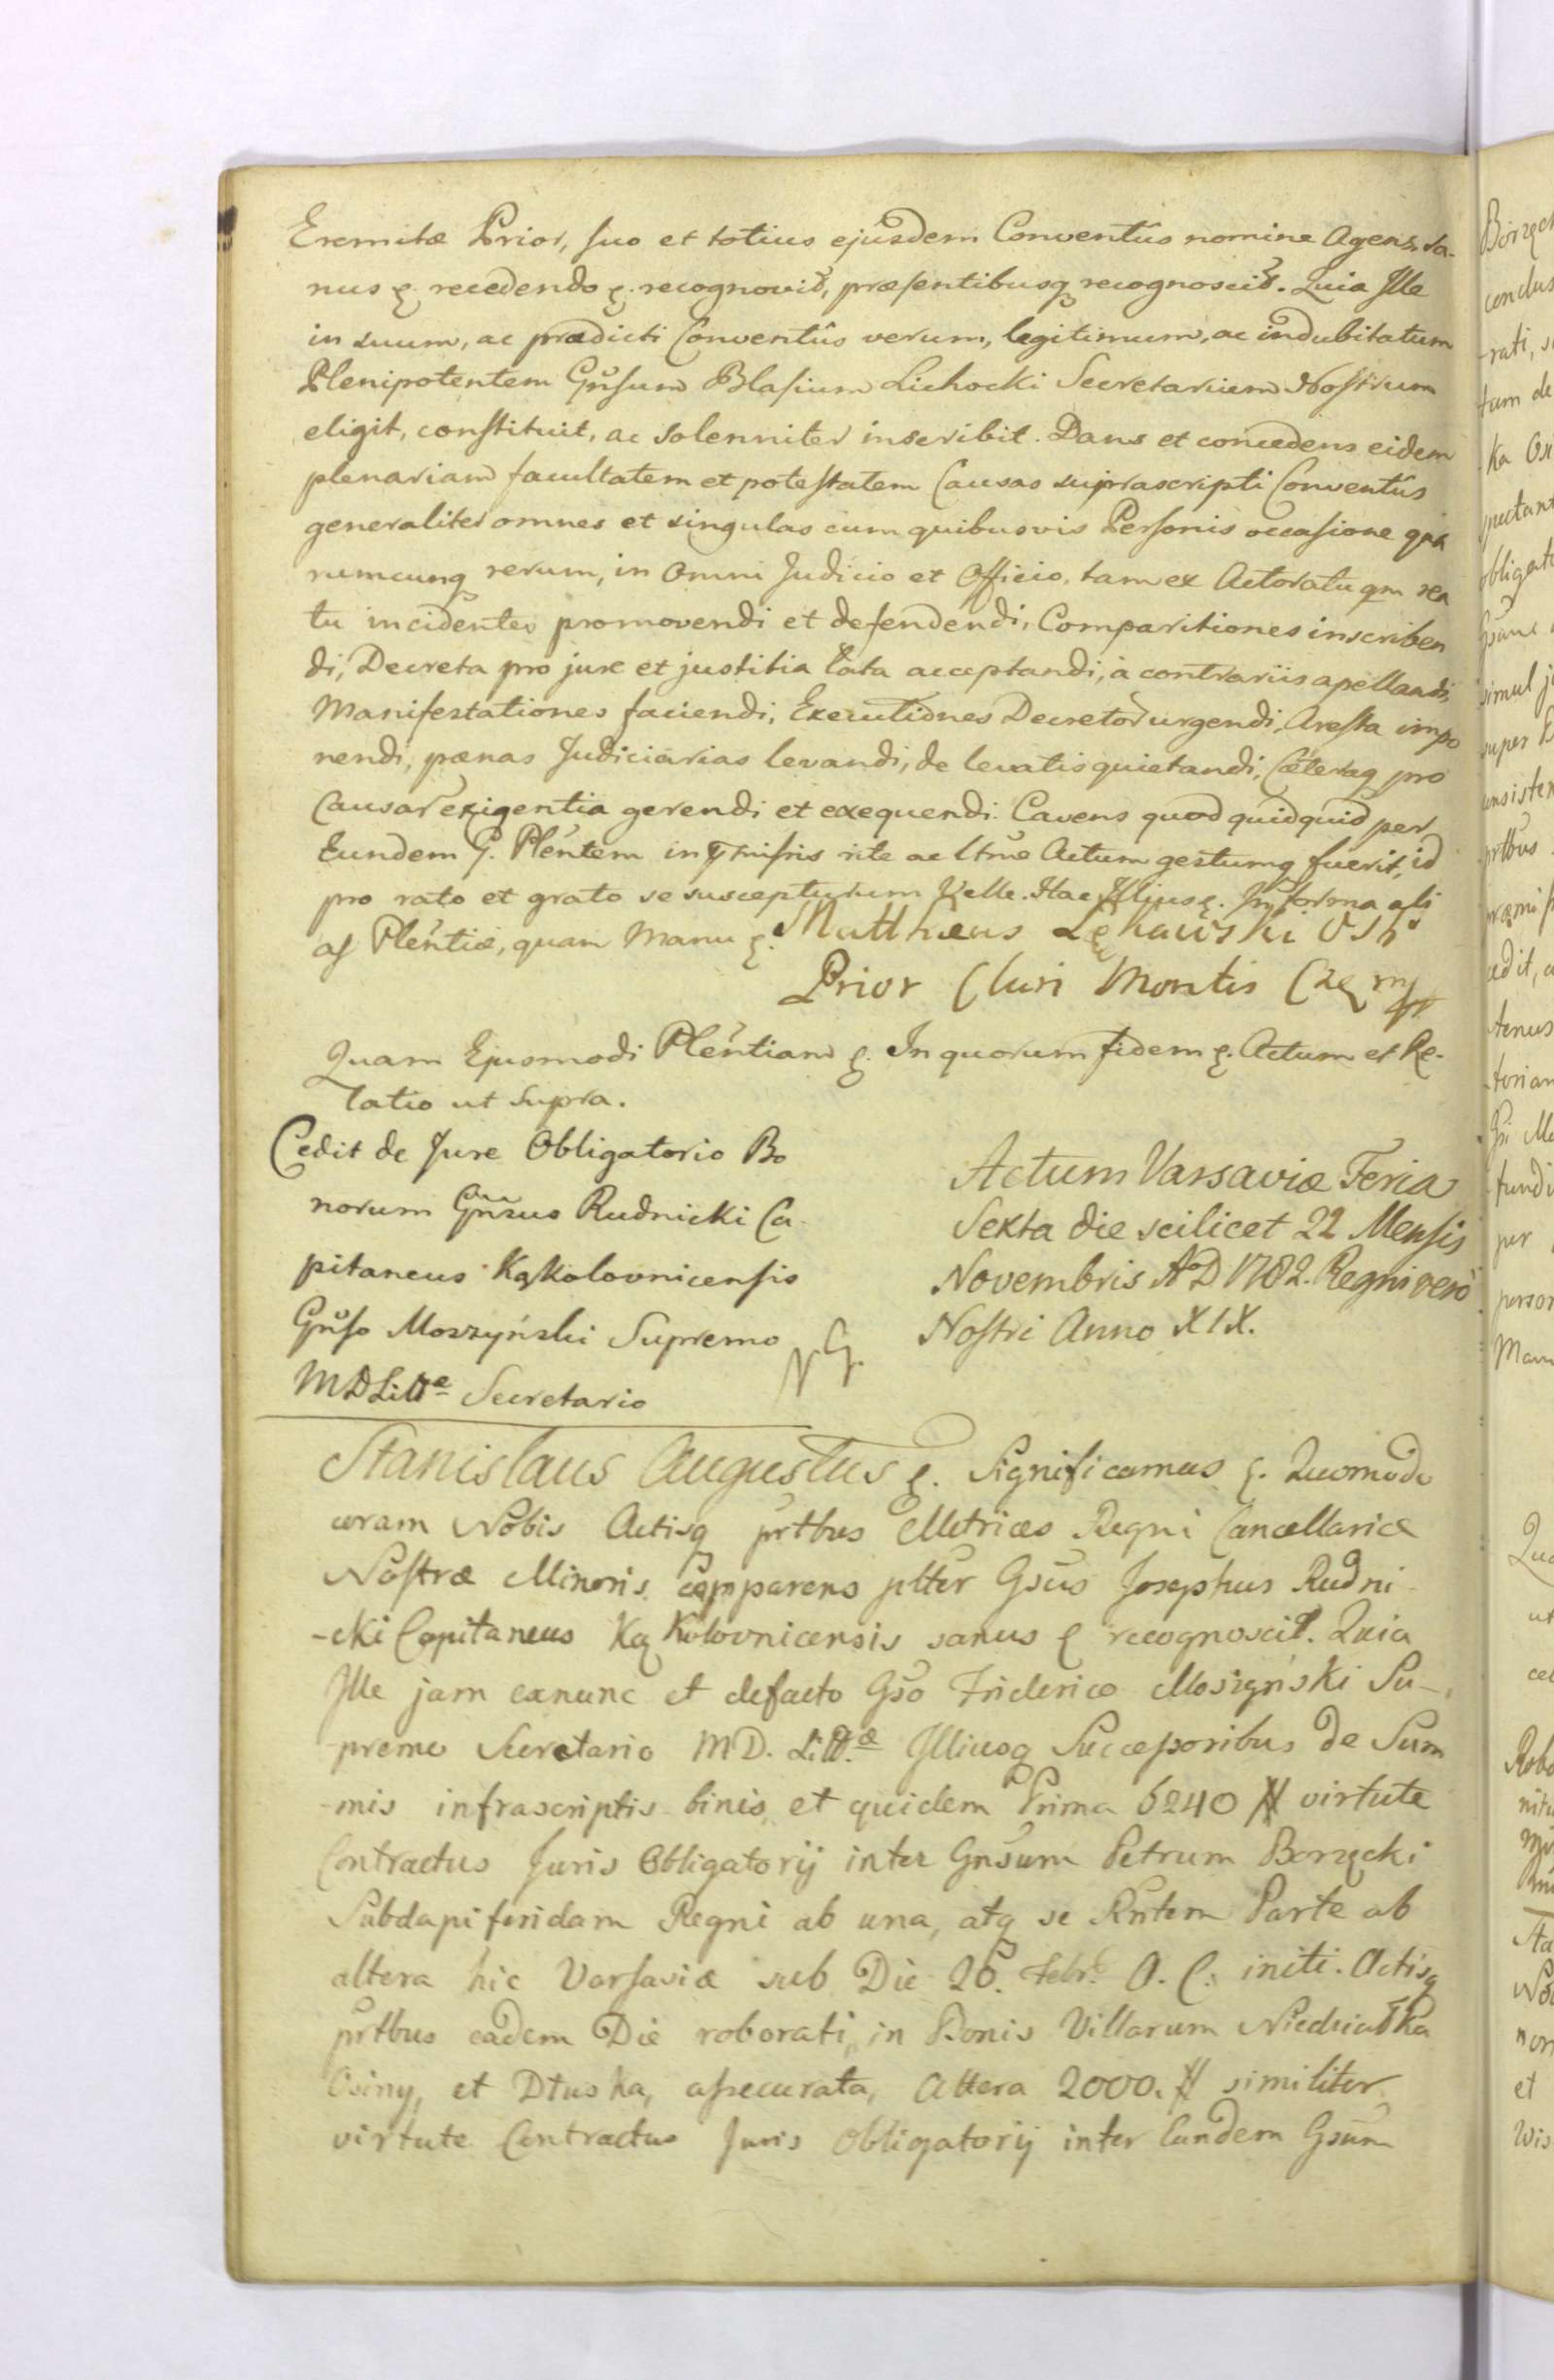 Eremitæ Prior, suo et totius ejusdem Conventûs nomine Agens, sa-
nus &. recedendo &. recognovit, præsentibusq recognoscit. Quia Ille
in suum, ac prædicti Conventûs verum, legitimum, ac indubitatum
Plenipotentem Gñsum Blasium Lichocki Secretarium Nostrum
eligit, constituit, ac solenniter inscribit. Dans et concedens eidem
plenariam facultatem et potestatem Causas suprascripti Conventûs
generaliter omnes et singulas cum quibusvis Personis occasione qua
rumcunq rerum, in omni Judicio et Officio, tam ex Actoratu qm rea
tu incidentes promovendi et defendendi, Comparitiones inscriben
di, Decreta pro jure et justitia lata acceptandi, à contrariis apellandi,
Manifestationes faciendi, Executiones Decretor urgendi, Aresta impo
nendi, pænas Judiciarias levandi, de levatis quietandi, Cæteraq pro
Causar exigentia gerendi et exequendi. Cavens quod quidquid per
Eundem G. Plentem in rite ac ltme Actum gestumq fuerit, id
pro rato et grato se suscepturum Velle. Hac Illius &. In forma ali
as Plentiæ, quam Manu &. Matthæus Lękawski
Prior Clari Montis Częn mp
Quam Ejusmodi Plentiam &. In quorum fidem &. Actum et Re-
latio ut supra.
Cedit de Jure Obligatorio Bo
norum Gñsus Rudnicki Ca-
pitaneus Kąkolovnicensis
Gñso Moszyński Supremo
MDLittæ Secretario
NG.
Actum Varsaviæ Feria
Sexta die scilicet 22 Mensis
Novembris AoD 1782. Regni verò
Nostri Anno XIX.
Stanislaus Augustus &. Significamus &. Quomodo
coram Nobis Actisq prtbus Metrices Regni Cancellariæ
Nostræ Minoris comparens plter Gsus Josephus Rudni-
-cki Capitaneus Kąkolovnicensis sanus & recognoscit. Quia
Ille jam exnunc et defacto Gso Friderico Moszyński Su-
premo Secretario MD. Litt.æ Illiusq Successoribus de Sum
-mis infrascriptis binis, et quidem Prima 6240 # virtute
Contractus Juris Obligatorij inter Gnsum Petrum Borzęcki
Subdapiferidam Regni ab una, atq se Rntem Parte ab
altera hic Varsaviæ sub Die 26. Febr. A. C. initi. Actisq
prtbus eadem Die roborati, in Bonis Villarum Niedziałka
Osiny, et Dłuska, assecurata, Altera 2000. # similiter
virtute Contractus Juris Obligatorij inter Eundem Gsum